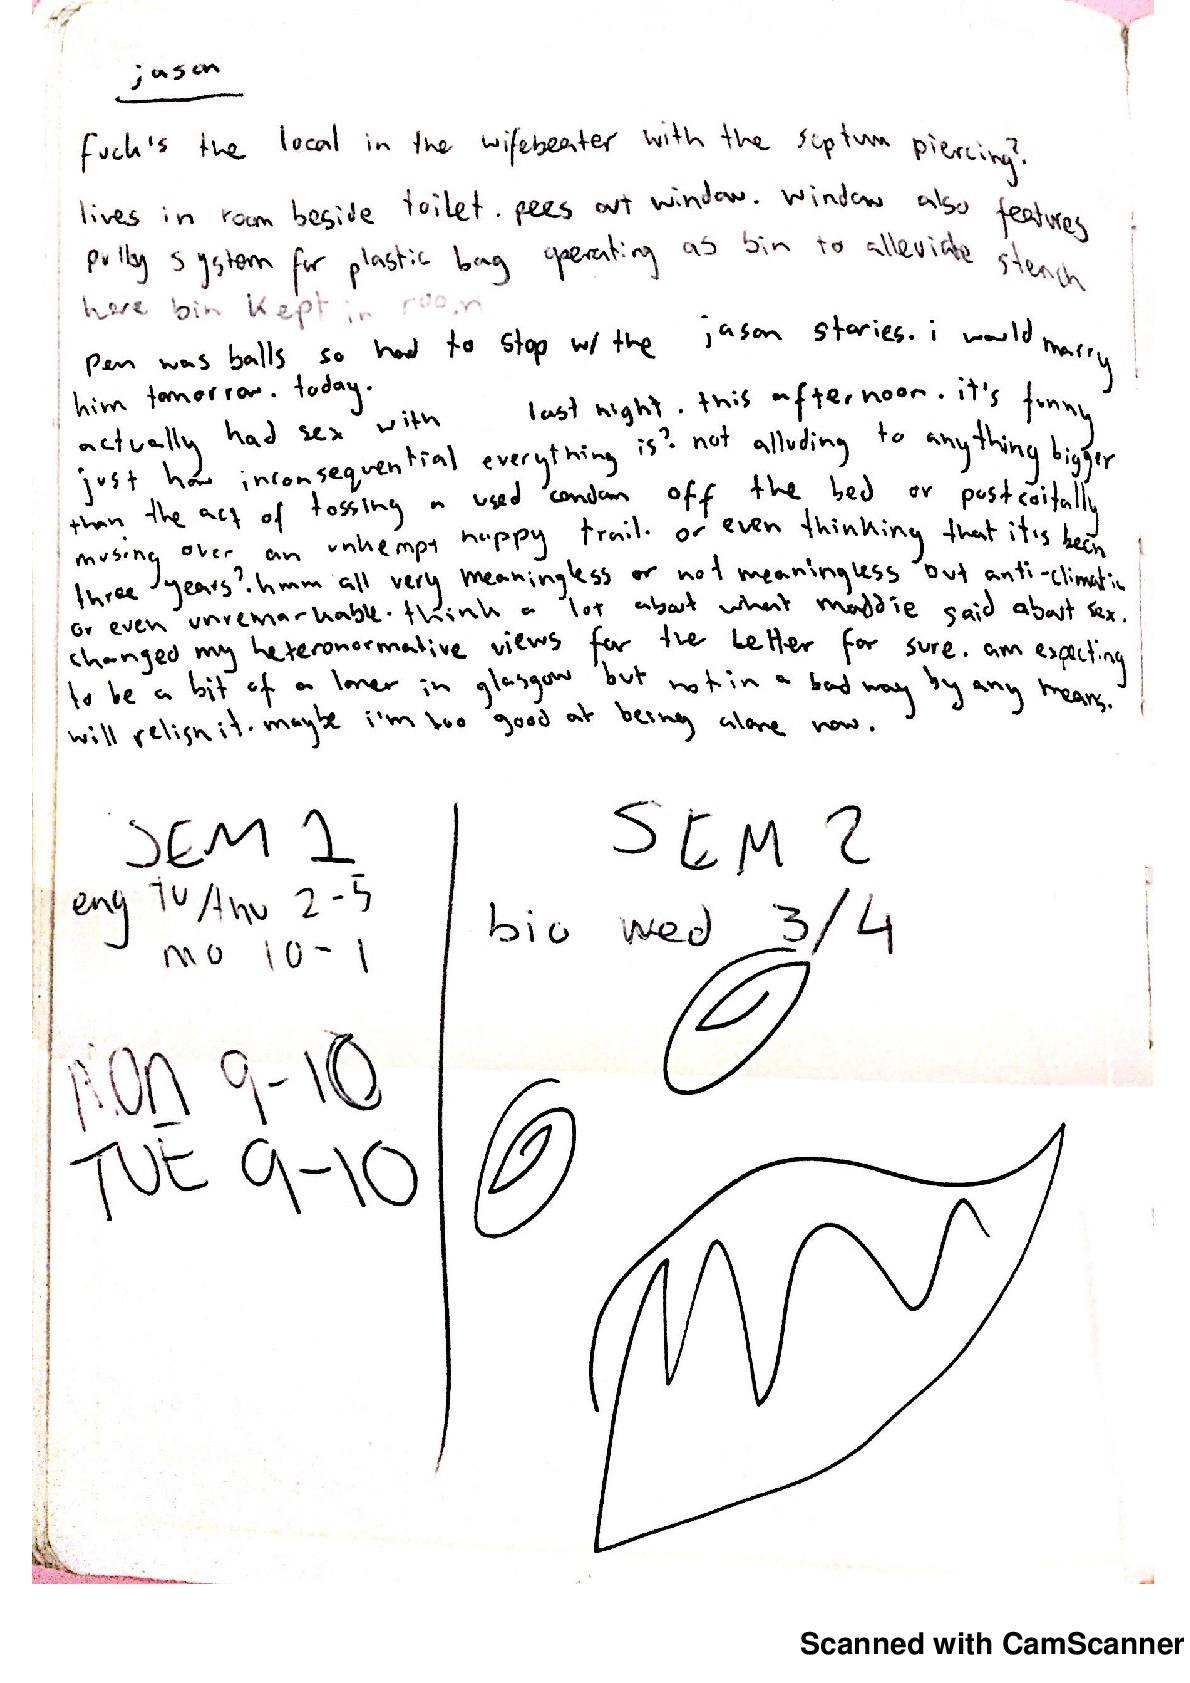 jason
fuck's the local in the wifebeater with the septum piercing?
lives in room beside toilet. pees out window. window also features
pully system for plastic bag operating as bin to alleviate stench
here bin kept in room
pen was balls so had to stop w/ the jason stories. i would marry
him tomorrow. today.
actually had sex with last night. this afternoon. it's funny
just how inconsequential everything is? not alluding to anything bigger
than the act of tossing a used condom off the bed or postcoitally
musing over an unkempt happy trail. or even thinking that it's been
three years? hmm all very meaningless or not meaningless but anti-climatic
or even unremarkable. think a lot about what maddie said about sex.
changed my heteronormative views for the better for sure. am expecting
to be a bit of a loner in glasgow but not in a bad way by any means.
will relish it. maybe i'm too good at being alone now.
SEM 1
eng TU/thu 2-5
mo 10-1
MON 9-10
TUE 9-10
SEM 2
bio wed 3/4
Scanned with CamScanner